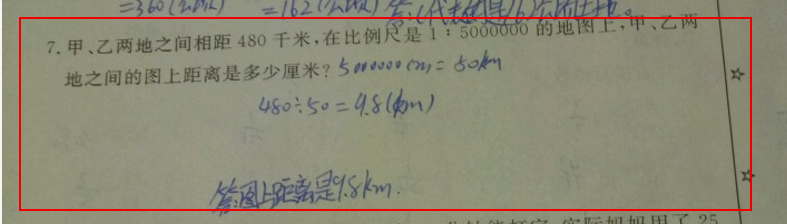 =360(公顷) =162(公顷)
7. 甲、乙两地之间相距 480 千米,在比例尺是 1 : 5000000 的地图上,甲、乙两
地之间的图上距离是多少厘米? 5000000cm=50km
480÷50=9.8(km)
答:图上距离是9.8km.
实际妈妈用了 25